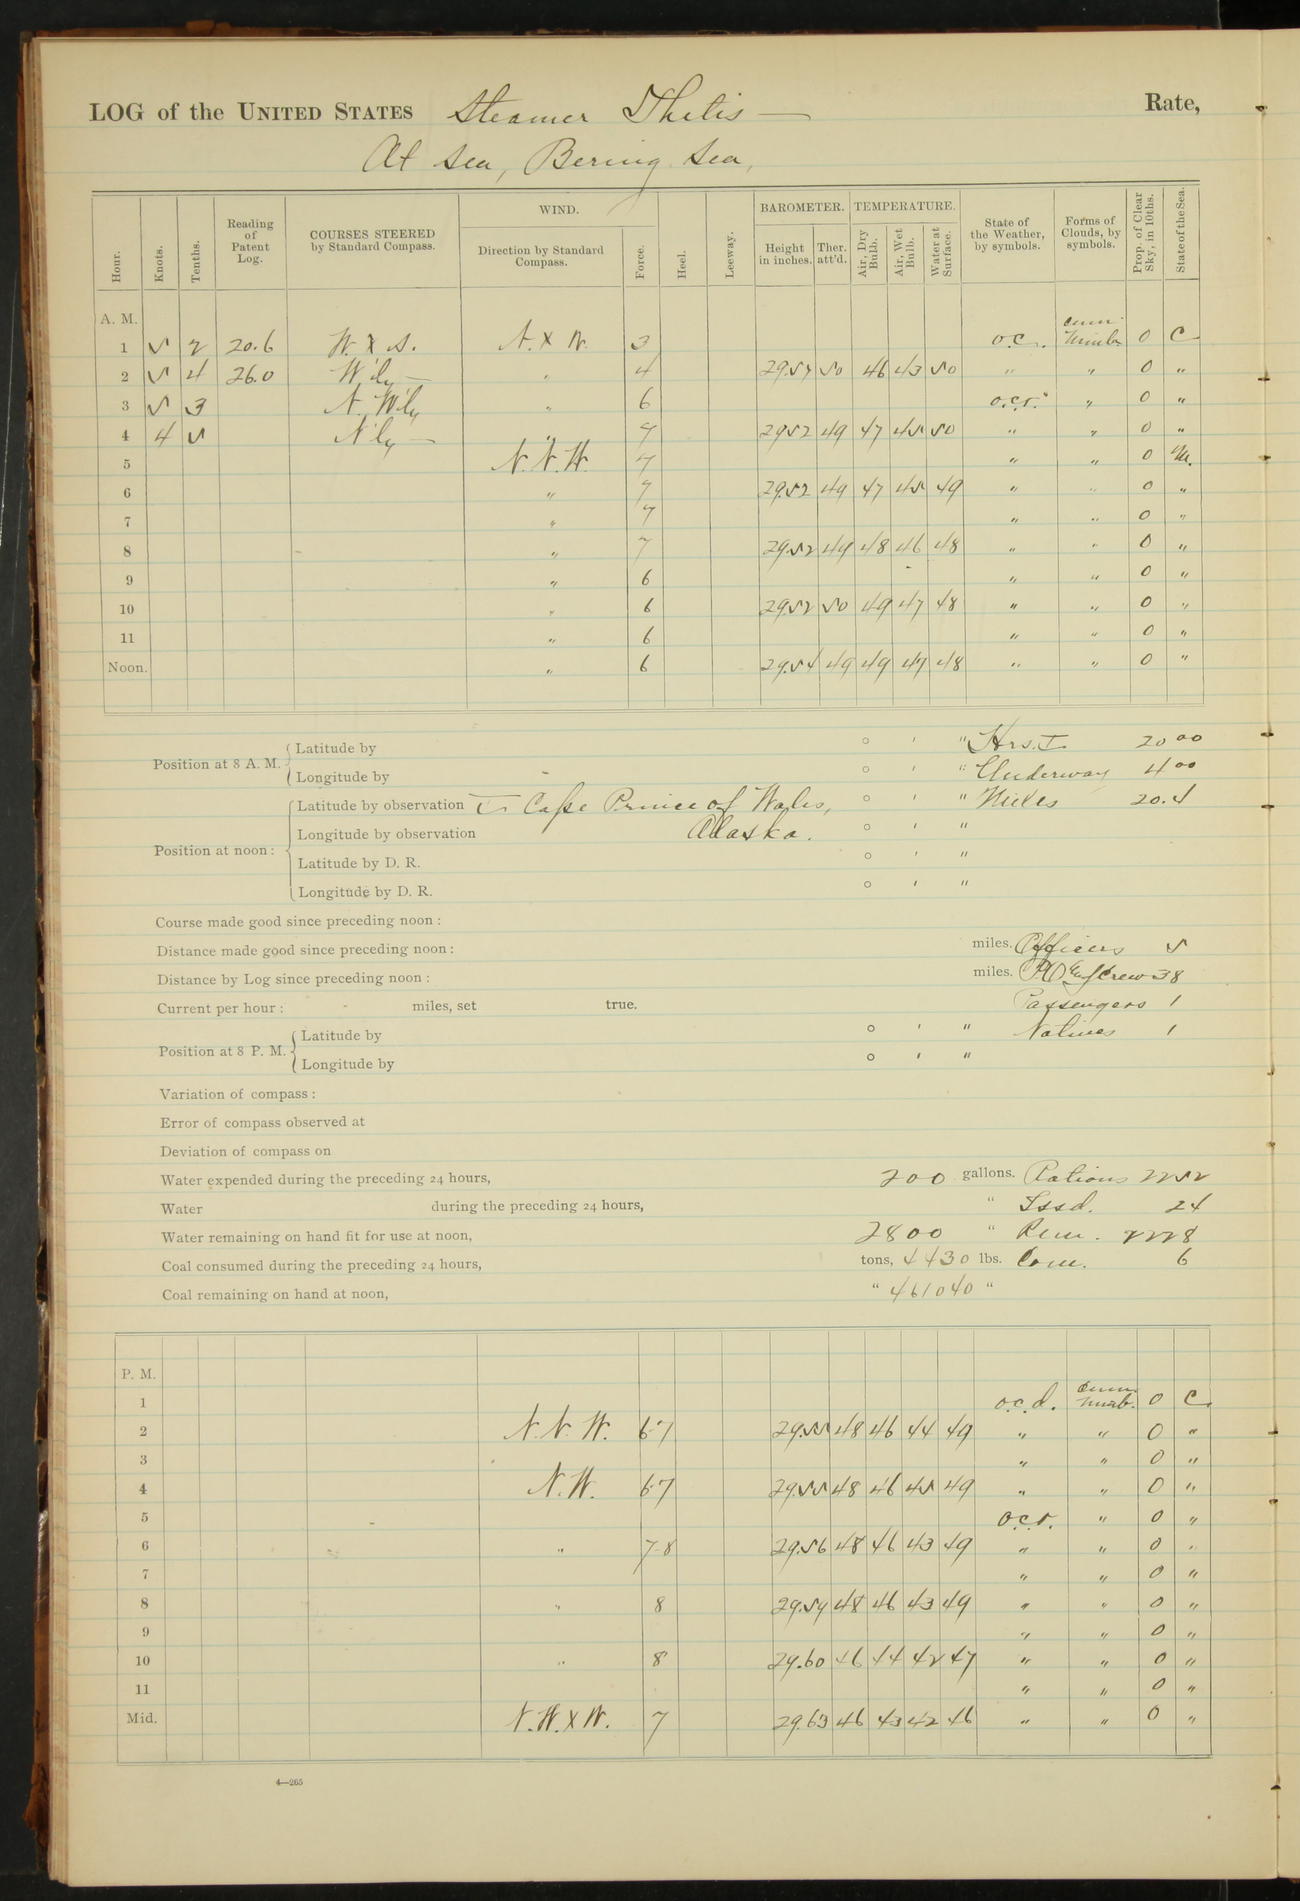 LOG of the UNITED STATES Steamer Thetis — Rate,
At sea, Bering Sea,
Hour. Knots. Tenths. Reading of Patent Log. COURSES STEERED by Standard Compass. WIND. Direction by Standard Compass. Force. Heel. Leeway. BAROMETER. Height in inches. Ther. att'd. TEMPERATURE. Air, Dry Bulb. Air, Wet Bulb. Water at Surface. State of the Weather, by symbols. Forms of Clouds, by symbols. Prop. of Clear Sky, in 10ths. State of the Sea.
A. M.
1 5 2 20.6 W. x S. N. x W. 3 o.c. cum. Nimb. 0 C
2 5 4 26.0 W'ly — " 4 29.57 50 46 43 50 " " 0 "
3 5 3 N. W'ly " 6 o.c.r. " 0 "
4 4 5 N'ly — " 7 29.52 49 47 45 50 " " 0 "
5 N. N. W. 7 " " 0 M.
6 " 7 29.52 49 47 45 49 " " 0 "
7 " 7 " " 0 "
8 " 7 29.52 49 48 46 48 " " 0 "
9 " 6 " " 0 "
10 " 6 29.52 50 49 47 48 " " 0 "
11 " 6 " " 0 "
Noon. " 6 29.54 49 49 47 48 " " 0 "
Position at 8 A. M. Latitude by ° ' " Hrs. 20 00
Longitude by ° ' " Underway 4 00
Position at noon: Latitude by observation Cape Prince of Wales, ° ' " Miles 20.4
Longitude by observation Alaska. ° ' "
Latitude by D. R. ° ' "
Longitude by D. R. ° ' "
Course made good since preceding noon:
Distance made good since preceding noon: miles. Officers 5
Distance by Log since preceding noon: miles. Crew 38
Current per hour: miles, set true. Passengers 1
Position at 8 P. M. Latitude by ° ' " Natives 1
Longitude by ° ' "
Variation of compass:
Error of compass observed at
Deviation of compass on
Water expended during the preceding 24 hours, 200 gallons. Rations 2252
Water during the preceding 24 hours, " Issd. 24
Water remaining on hand fit for use at noon, 2800 " Rem. 2228
Coal consumed during the preceding 24 hours, tons, 4430 lbs. Com. 6
Coal remaining on hand at noon, " 461040 "
P. M.
1 o.c.d. cum. Nimb. 0 C.
2 N. N. W. 6-7 29.55 48 46 44 49 " " 0 "
3 " " 0 "
4 N. W. 6-7 29.55 48 46 45 49 " " 0 "
5 o.c.r. " 0 "
6 " 7-8 29.56 48 46 43 49 " " 0 "
7 " " 0 "
8 " 8 29.59 48 46 43 49 " " 0 "
9 " " 0 "
10 " 8 29.60 46 44 42 47 " " 0 "
11 " " 0 "
Mid. N. W. x W. 7 29.63 46 43 42 46 " " 0 "
4—265